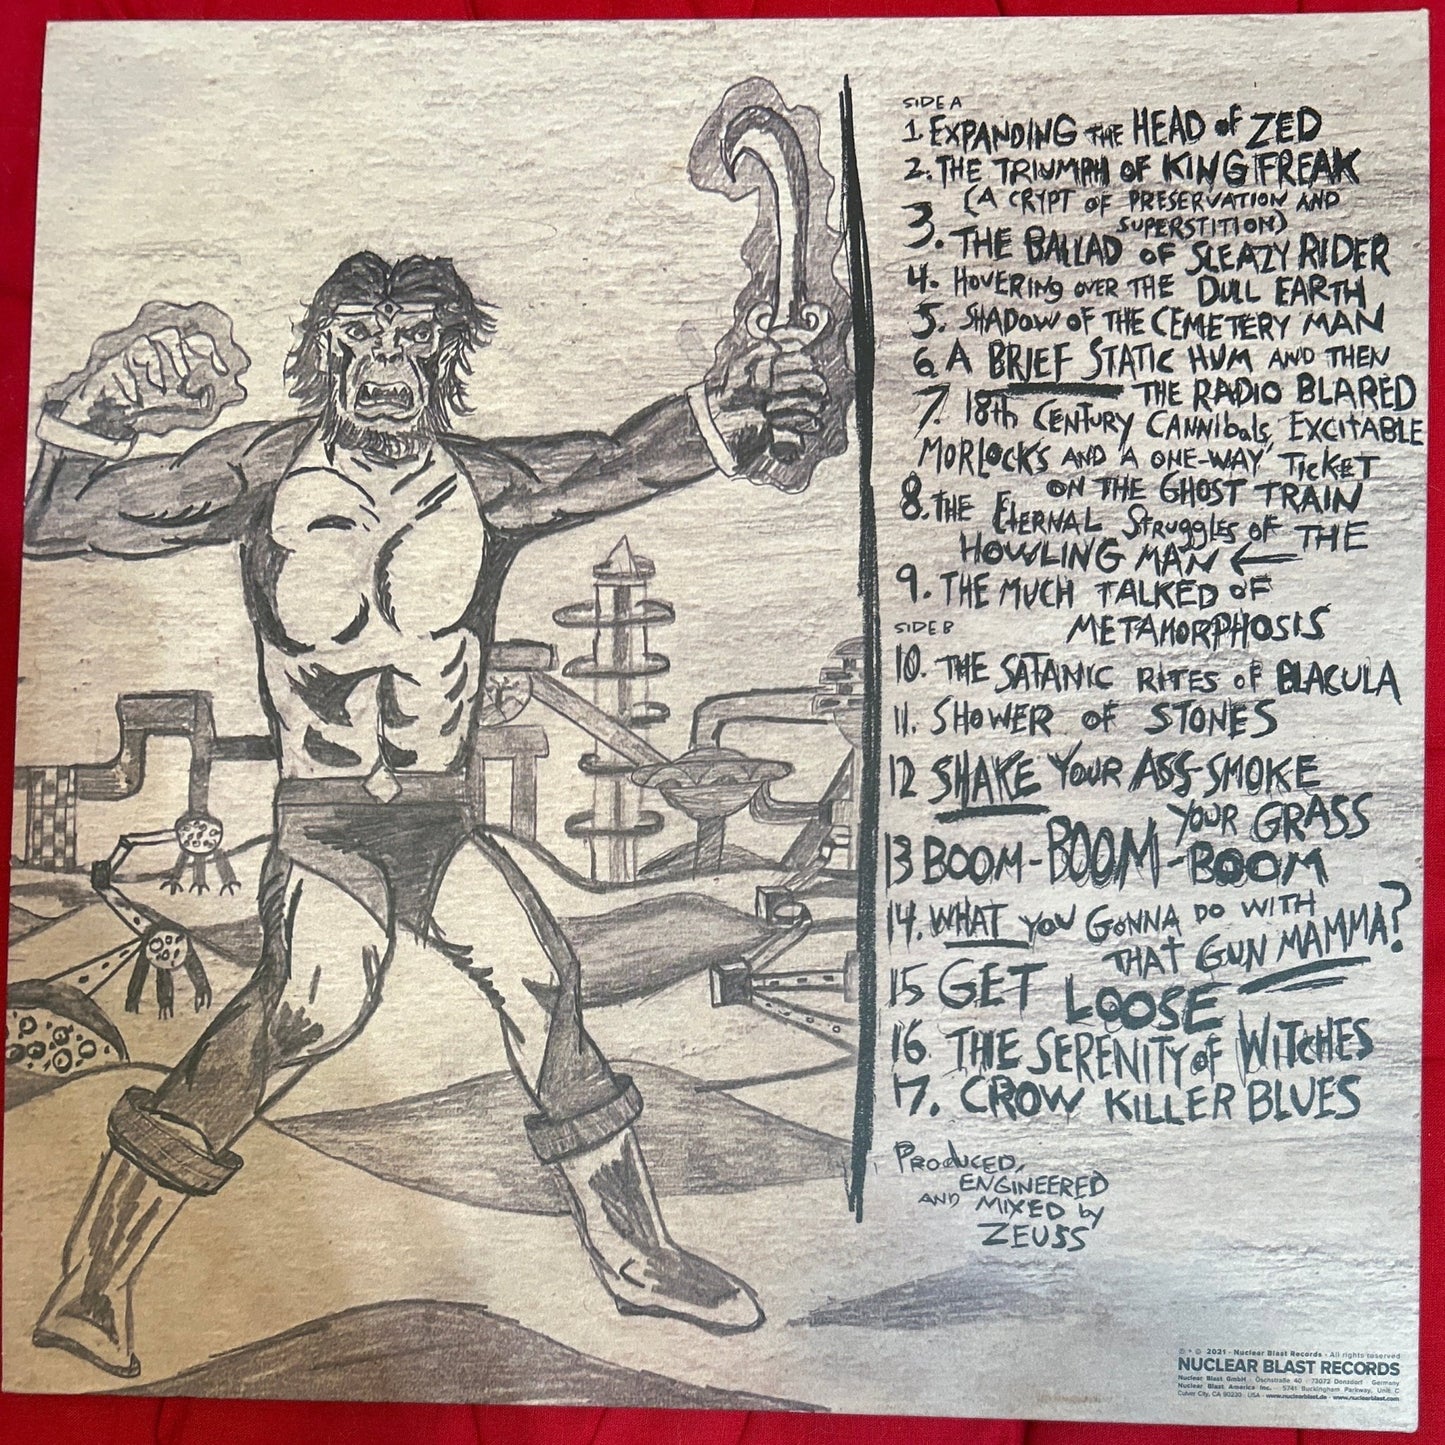 SIDE A
1. EXPANDING THE HEAD OF ZED
2. THE TRIUMPH OF KING FREAK
(A CRYPT OF PRESERVATION AND
SUPERSTITION)
3. THE BALLAD OF SLEAZY RIDER
4. HOVERING OVER THE DULL EARTH
5. SHADOW OF THE CEMETERY MAN
6. A BRIEF STATIC HUM AND THEN
THE RADIO BLARED
7. 18th CENTURY CANNibals, EXCITABLE
MORLOCKS AND A ONE-WAY TICKET
ON THE GHOST TRAIN
8. THE ETERNAL Struggles OF THE
HOWLING MAN ←
9. THE MUCH TALKED OF
METAMORPHOSIS
SIDE B
10. THE SATANIC RITES OF BLACULA
11. SHOWER OF STONES
12 SHAKE YOUR ASS-SMOKE
YOUR GRASS
13 BOOM-BOOM-BOOM
14. WHAT YOU GONNA DO WITH
THAT GUN MAMMA?
15 GET LOOSE
16. THE SERENITY OF WITCHES
17. CROW KILLER BLUES
PRODUCED,
ENGINEERED
AND MIXED by
ZEUSS
℗ + © 2021 · Nuclear Blast Records · All rights reserved
NUCLEAR BLAST RECORDS
Nuclear Blast GmbH · Öschstraße 40 · 73072 Donzdorf · Germany
Nuclear Blast America Inc. · 5741 Buckingham Parkway, Unit C
Culver City, CA 90230 · USA · www.nuclearblast.de · www.nuclearblast.com